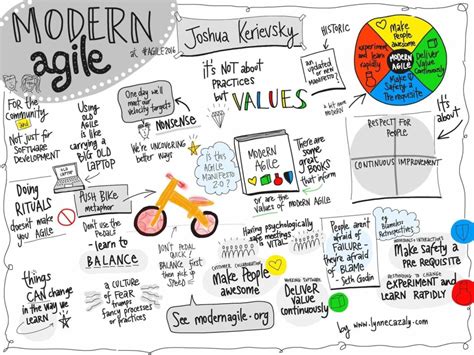 MODERN
agile
at #AGILE2016
Joshua Kerievsky
HISTORIC
it's NOT about
PRACTICES
but
VALUES
an
updated
or new
MANIFESTO?
Make
People
awesome
experiment
and learn
rapidly
Deliver
Value
Continuously
MODERN
AGILE
Make
Safety a
Pre requisite
It's
about
RESPECT FOR
PEOPLE
CONTINUOUS IMPROVEMENT
FOR the
Community
and
Not just for
Software
Development
Using
OLD
AGILE
is like
carrying a
BIG OLD
LAPTOP
One day we'll
meet our
velocity targets
NONSENSE
We're UNCOVERING
better ways
is this
AGILE
MANIFESTO
2.0?
MODERN
AGILE
There are
some
great
BOOKS
that
inform
this
or are the
values of MODERN AGILE
Doing
RITUALS
doesn't make
you AGILE
PUSH BIKE
metaphor
Don't use the
Pedals
- learn to
BALANCE
DON'T
PEDAL
QUICK?
BALANCE
first,
then pick
up SPEED
Having psychologically
safe meetings
is VITAL
People aren't
afraid of
FAILURE -
they're
afraid of
BLAME
- Seth Godin
eg
Blameless
Retrospectives
INTERACTIONS
Make safety a
PRE REQUISITE
experiment and
LEARN RAPIDLY
CUSTOMER COLLABORATION
Make People
awesome
WORKING SOFTWARE
DELIVER
value
Continuously
things
CAN change
in the way
we LEARN
a CULTURE
of FEAR
trumps
fancy processes
or practices
See modernagile.org
by www.lynnecazaly.com